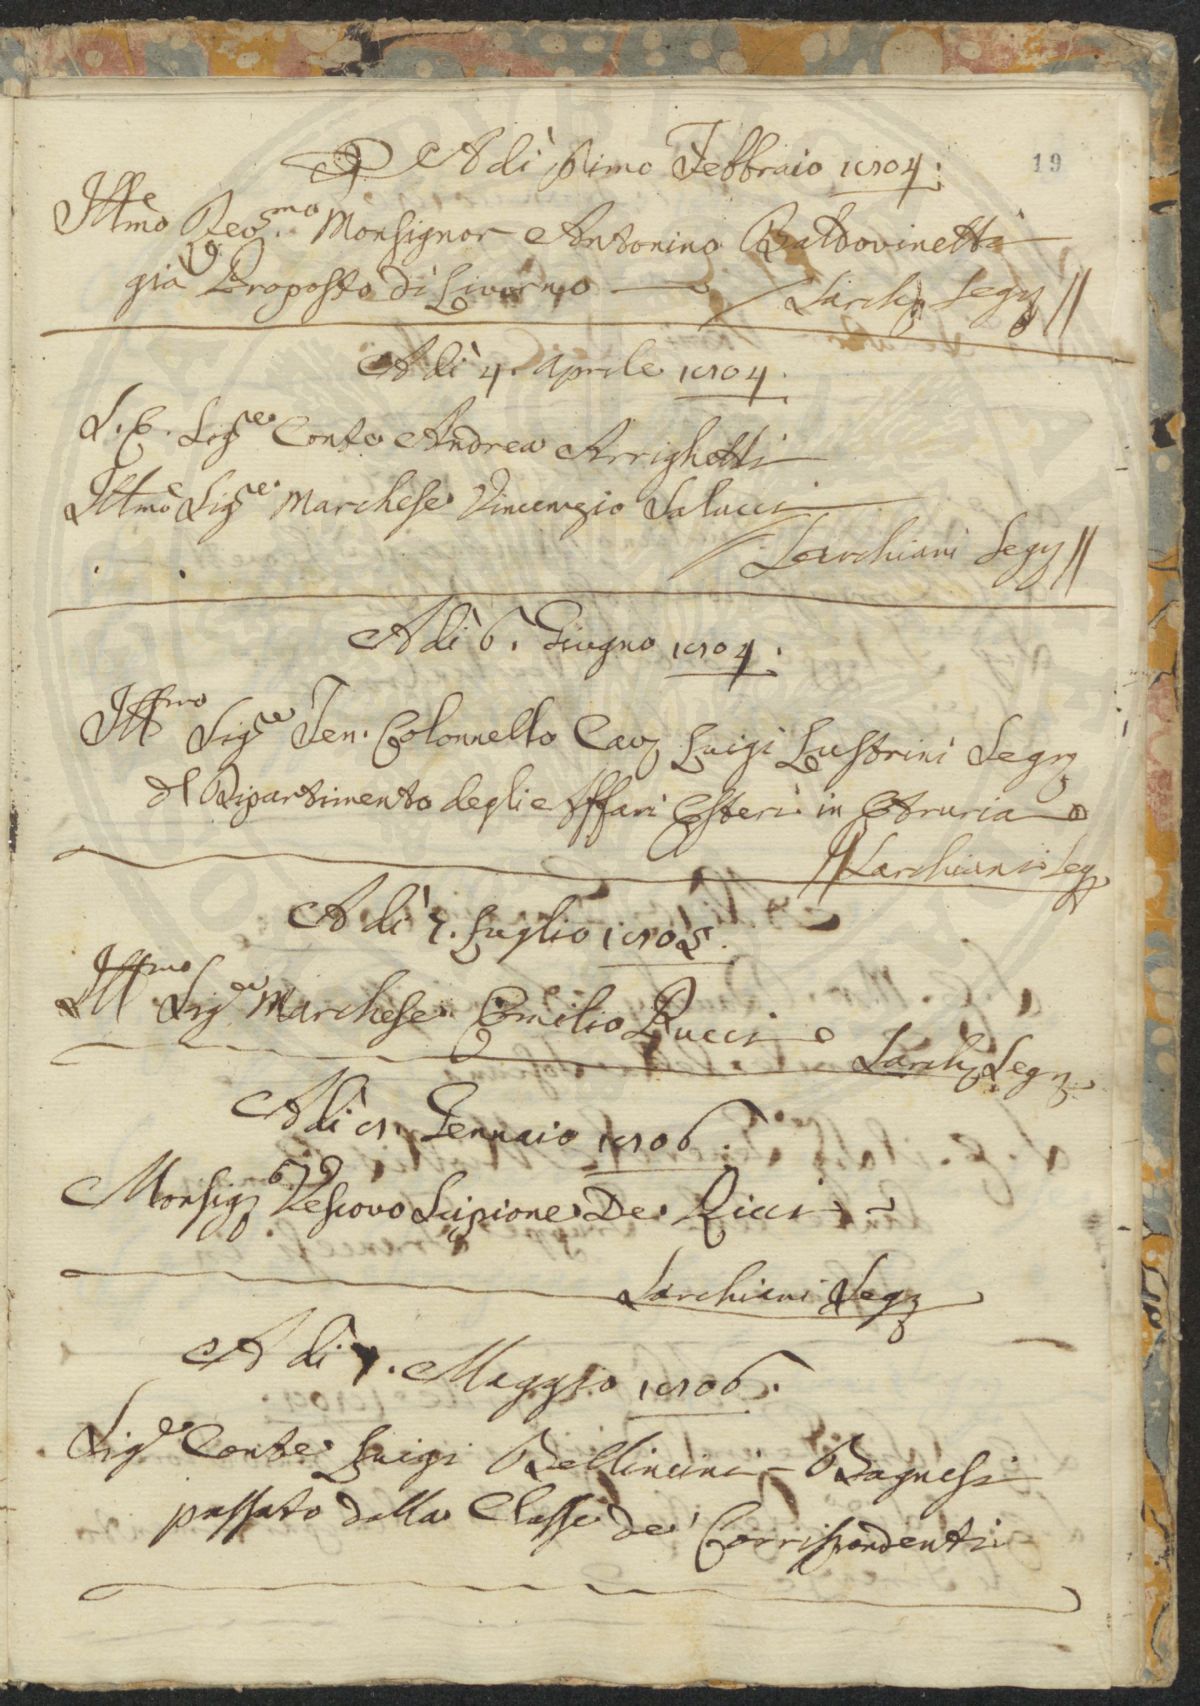 A dì Primo Febbraio 1804.
19
Ill.mo e Rev.mo Monsignor Antonino Baldovinetti
già Proposto di Livorno
Sarch. Seg.
A dì 4. Aprile 1804.
S. E. Sig.re Conte Andrea Arrighetti
Ill.mo Sig.re Marchese Vincenzio Salucci
Sarchiani Seg.
A dì 6. Giugno 1804.
Ill.mo Sig.re Ten. Colonnello Cav. Luigi Lustrini Seg.
del Dipartimento degli Affari Esteri in Etruria
Sarchiani Seg.
A dì 7. Luglio 1805.
Ill.mo Sig.re Marchese Emilio Pucci
Sarch. Seg.
A dì 8. Gennaio 1806.
Monsig. Vescovo Scipione De Ricci
Sarchiani Seg.
A dì 7. Maggio 1806.
Sig.e Conte Luigi Bellincini-Bagnesi
passato dalla Classe de' Corrispondenti